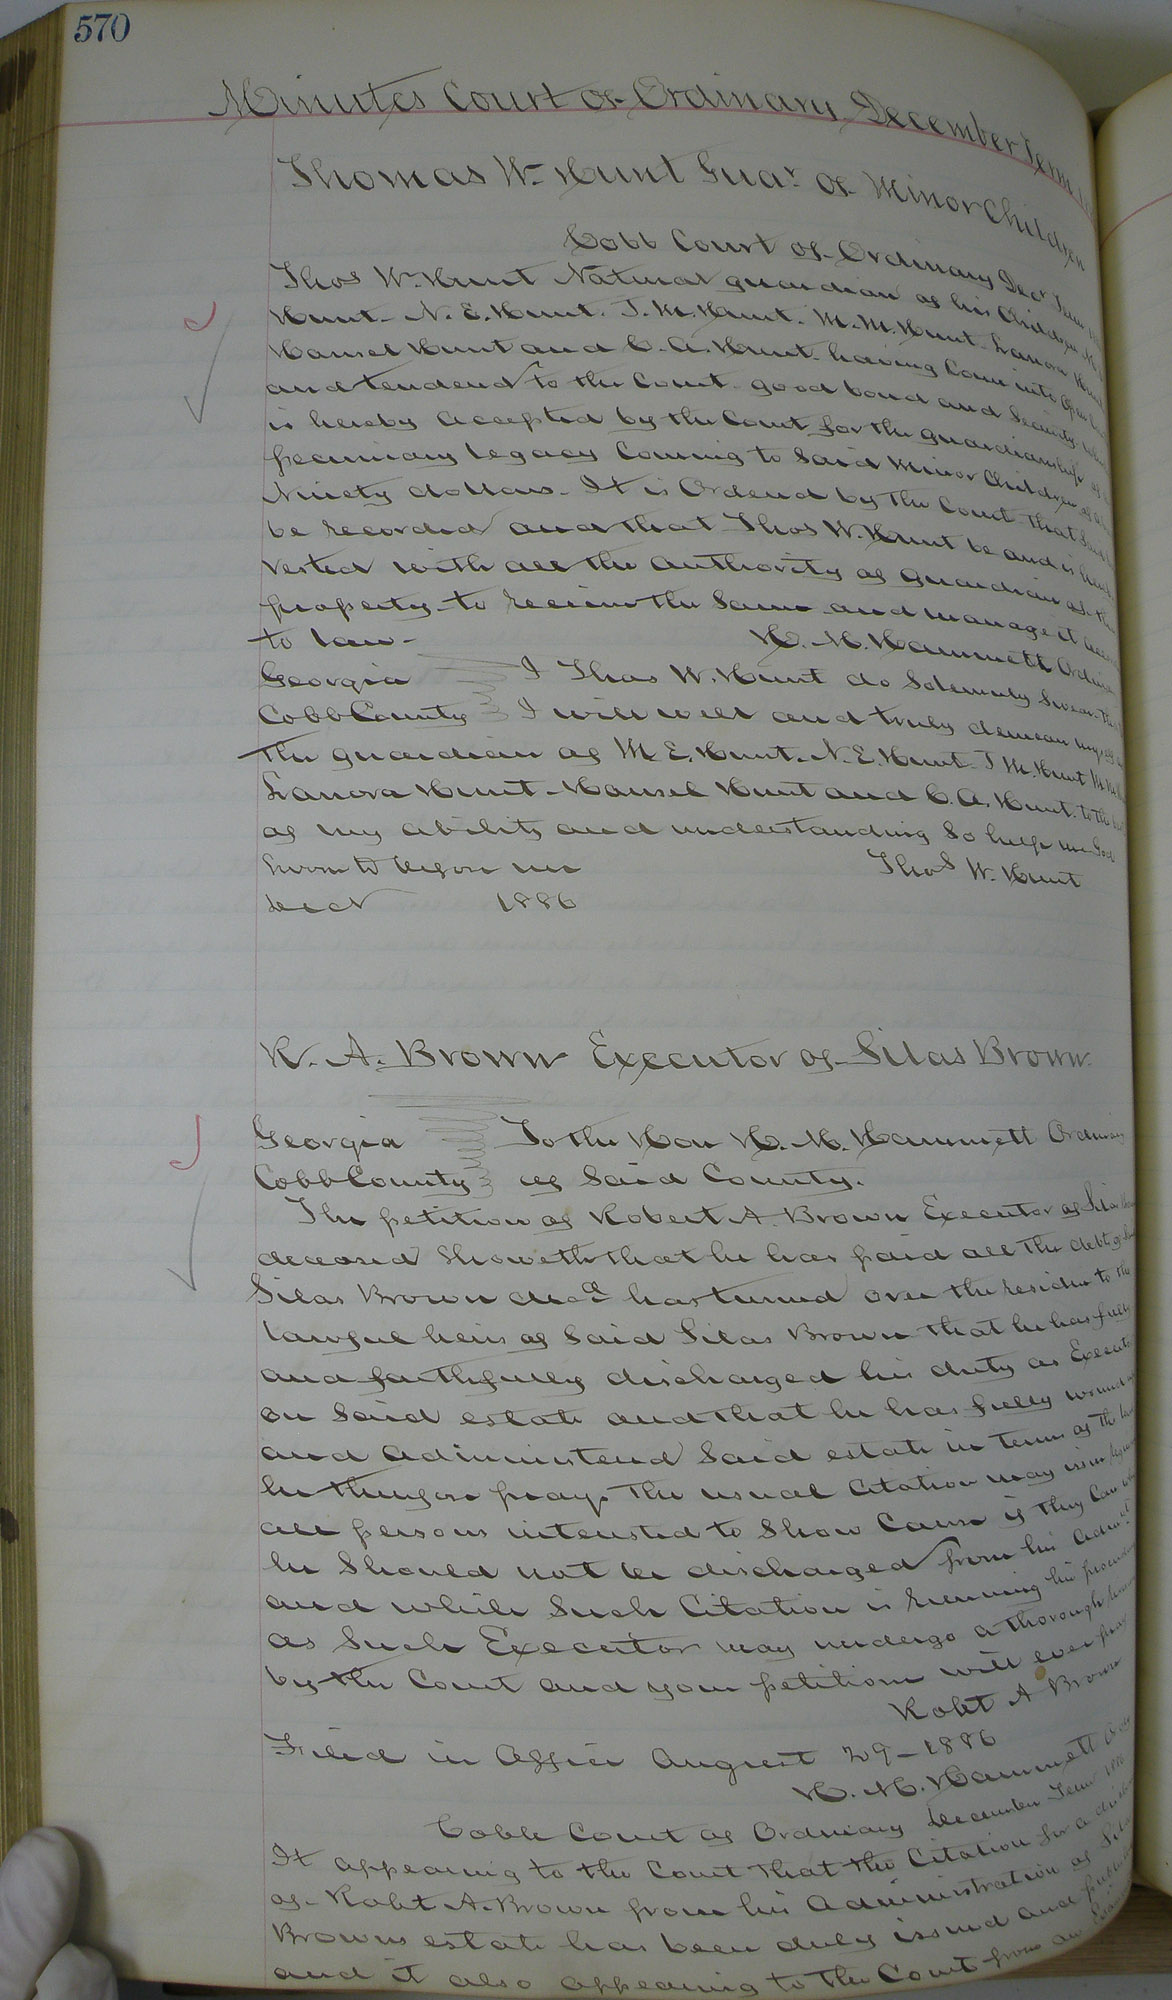 570
Minutes Court of Ordinary December Term
Thomas W. Hunt Guar of Minor Children
Cobb Court of Ordinary Decr Term
Thos W. Hunt Natural guardian of his Children
Hunt. N. E. Hunt. J. M. Hunt. M. M. Hunt. Lanora Hunt
Hansel Hunt and C. A. Hunt. having Come into Open
and tendered to the Court good bond and Security
is hereby accepted by the Court for the guardianship of
pecuniary legacy Coming to Said Minor Children of
Ninety dollars. It is Ordered by the Court that Said
be recorded and that Thos W. Hunt be and is hereby
vested with all the authority of guardian of
property to receive the Same and manage it
to law. H. M. Hammett Ordinary
Georgia I Thos W. Hunt do Solemnly Swear that
Cobb County I will well and truly demean myself as
the guardian of M E. Hunt. N. E. Hunt J M. Hunt M. M.
Lanora Hunt. Hansel Hunt and C. A. Hunt. to the best
of my ability and understanding So help me God
Sworn to before me Thos W. Hunt
Decr 1886
R. A. Brown Executor of Silas Brown.
Georgia To the Hon H. M. Hammett Ordinary
Cobb County of Said County.
The petition of Robert A. Brown Executor of Silas
deceased Showeth that he has paid all the debts of
Silas Brown decd has turned over the residue to the
lawful heirs of Said Silas Brown that he has fully
and faithfully discharged his duty as Executor
on Said estate and that he has fully wound up
and administered Said estate in terms of the law
he therefore prays the usual Citation may issue requiring
all persons interested to Show Cause if they Can why
he Should not be discharged from his Admr
and while Such Citation is running his proceedings
as Such Executor may undergo a thorough
by the Court and your petitioner will ever pray
Robt A Brown
Filed in Office August 29-1886
H. M. Hammett Ordy
Cobb Court of Ordinary December Term 1886
It appearing to the Court that the Citation for a
of Robt A. Brown from his Administration of Silas
Browns estate has been duly issued and
and it also appearing to the Court from an